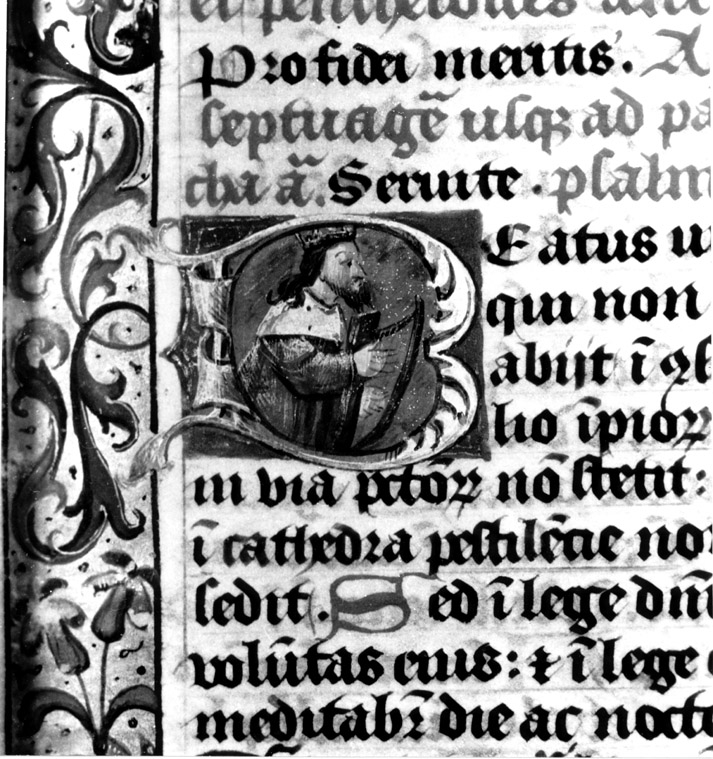 Pro fidei meritis. A
septuagē usq; ad pa
cha ā. Seruite. psalm
BEatus u
qui non
abijt ī
lio īpioꝝ
in via pctōꝝ nō stetit:
ī cathedra pestilēcie no
sedit. Sed ī lege dn̄i
volūtas eius: ⁊ ī lege
meditabr̄ die ac nocte